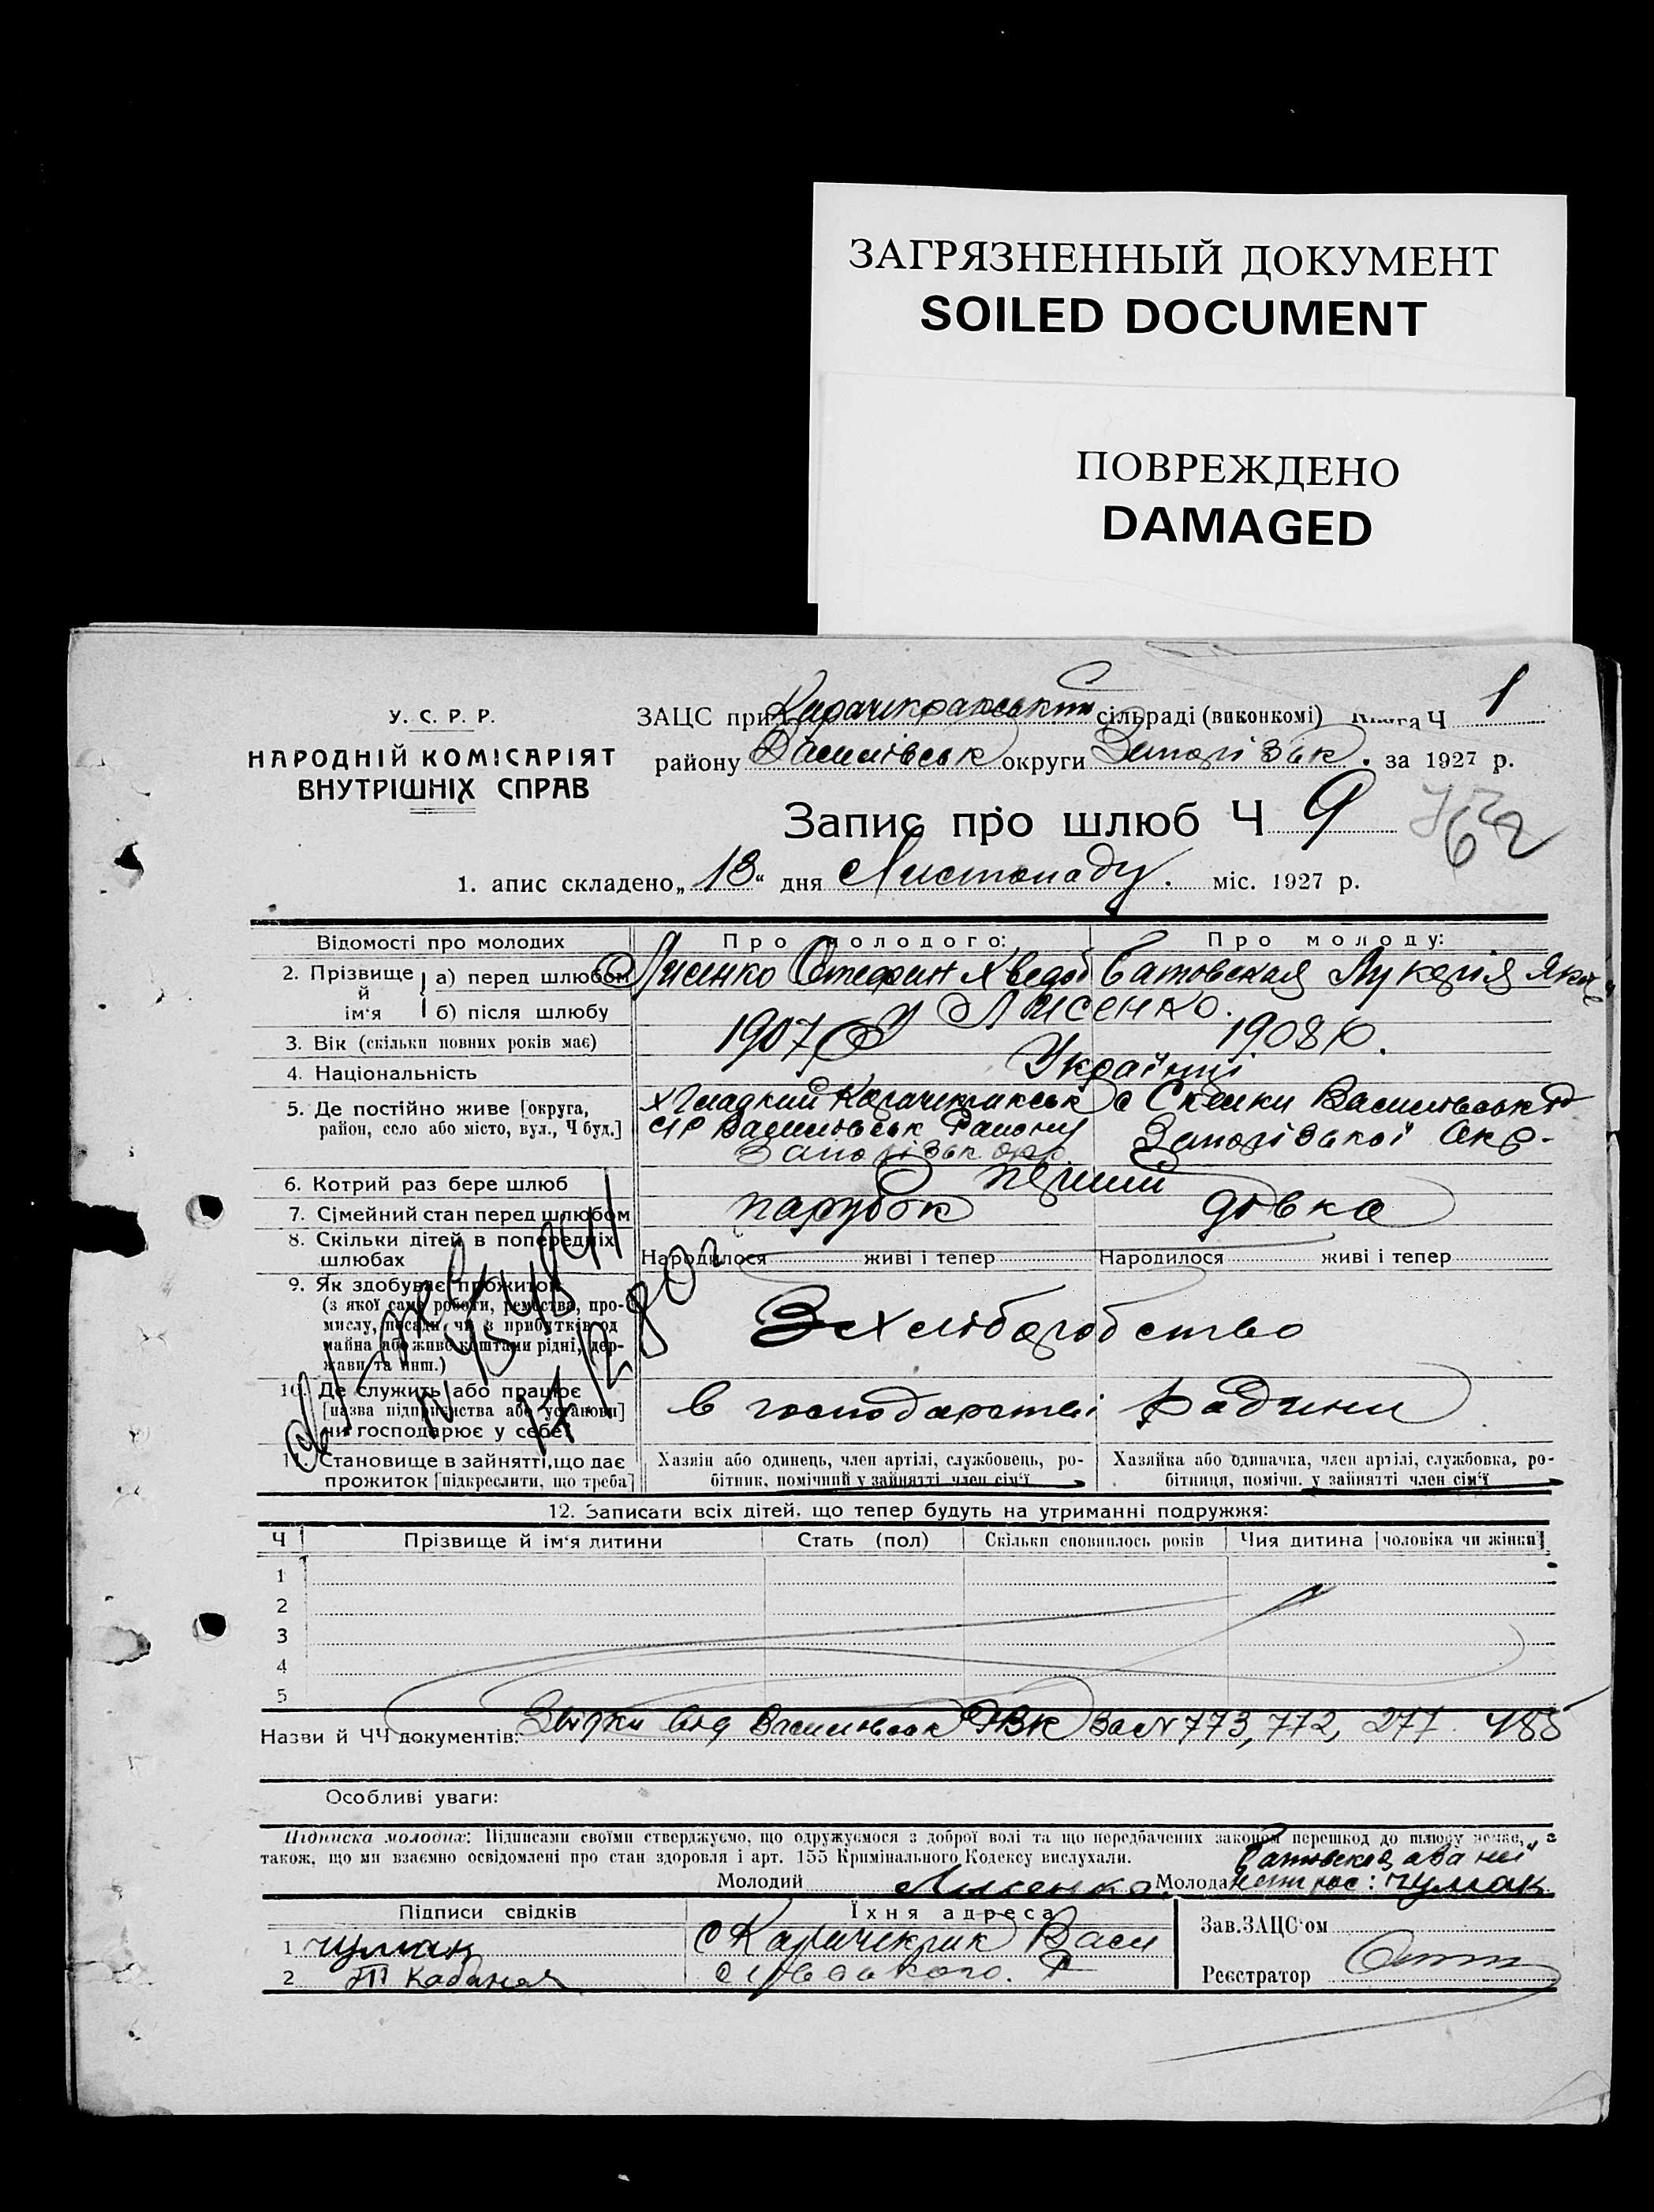 ЗАГРЯЗНЕННЫЙ ДОКУМЕНТ
SOILED DOCUMENT
ПОВРЕЖДЕНО
DAMAGED
У. С. Р. Р.
НАРОДНІЙ КОМІСАРІЯТ
ВНУТРІШНІХ СПРАВ
ЗАЦС при Карачикракський сільраді (виконкомі) Книга Ч 1
району Василівськ округи Запорізьк. за 1927 р.
Запис про шлюб Ч 9
62
1. апис складено „13“ дня Листопаду. міс. 1927 р.
Відомості про молодих Про молодого: Про молоду:
2. Прізвище й ім‘я а) перед шлюбом Лисенко Стефан Хведор Батовская Лукерія Яков
б) після шлюбу Лисенко.
3. Вік (скільки повних років має) 1907 1908
4. Національність Українці
5. Де постійно живе [округа, район, село або місто, вул., Ч буд.] х Гладкий Карачикракськ с Скельки Василівськ
с/р Василіовськ Району Запорізької Окр.
Запорізьк. окр
6. Котрий раз бере шлюб перший
7. Сімейний стан перед шлюбом парубок дівка
8. Скільки дітей в попередніх шлюбах Народилося живі і тепер Народилося живі і тепер
9. Як здобуває прожиток
(з якої саме роботи, ремества, про-
мислу, посади, чи з прибутків од
майна або живе коштами рідні, дер-
жави та инш.)
З хліборобство
10. Де служить або працює
[назва підприємства або установи]
чи господарює у себе?
в господарстві родини
11. Становище в зайнятті, що дає
прожиток [підкреслити, що треба]
Хазяїн або одинець, член артілі, службовець, ро-
бітник, помічний у зайнятті член сім‘ї
Хазяйка або одиначка, член артілі, службовка, ро-
бітниця, помічн. у зайнятті член сім‘ї
12. Записати всіх дітей, що тепер будуть на утриманні подружжя:
Ч Прізвище й ім‘я дитини Стать (пол) Скільки сповнилось років Чия дитина [чоловіка чи жінки]
1
2
3
4
5
Назви й ЧЧ документів: Звідки від Василівськ РВК За № 773, 772, 277 485
Особливі уваги:
Підписка молодих: Підписами своїми стверджуємо, що одружуємося з доброї волі та що передбачених законом перешкод до шлюбу немає, а
також, що ми взаємно освідомлені про стан здоровля і арт. 155 Кримінального Кодексу вислухали.
Батовская а за неї
Молодий Лисенко Молода Чумак
Підписи свідків Їхня адреса Зав. ЗАЦС‘ом
1 Чумак с Карачикрик Васи
2 Кабаная лівського. Р Реєстратор